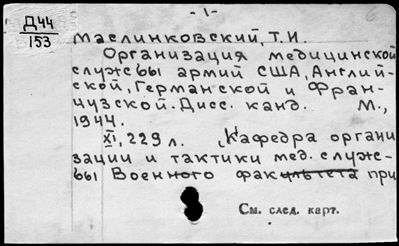 - 1 -
Д44
153
Маслинковский, Т. И.
Организация медицинской
службы армий США, Английс-
кой, Германской и Фран-
цузской. Дисс. канд. М.,
1944.
XI, 229 л. (Кафедра органи
зации и тактики мед. служ-
бы Военного факультета при
См. след. карт.